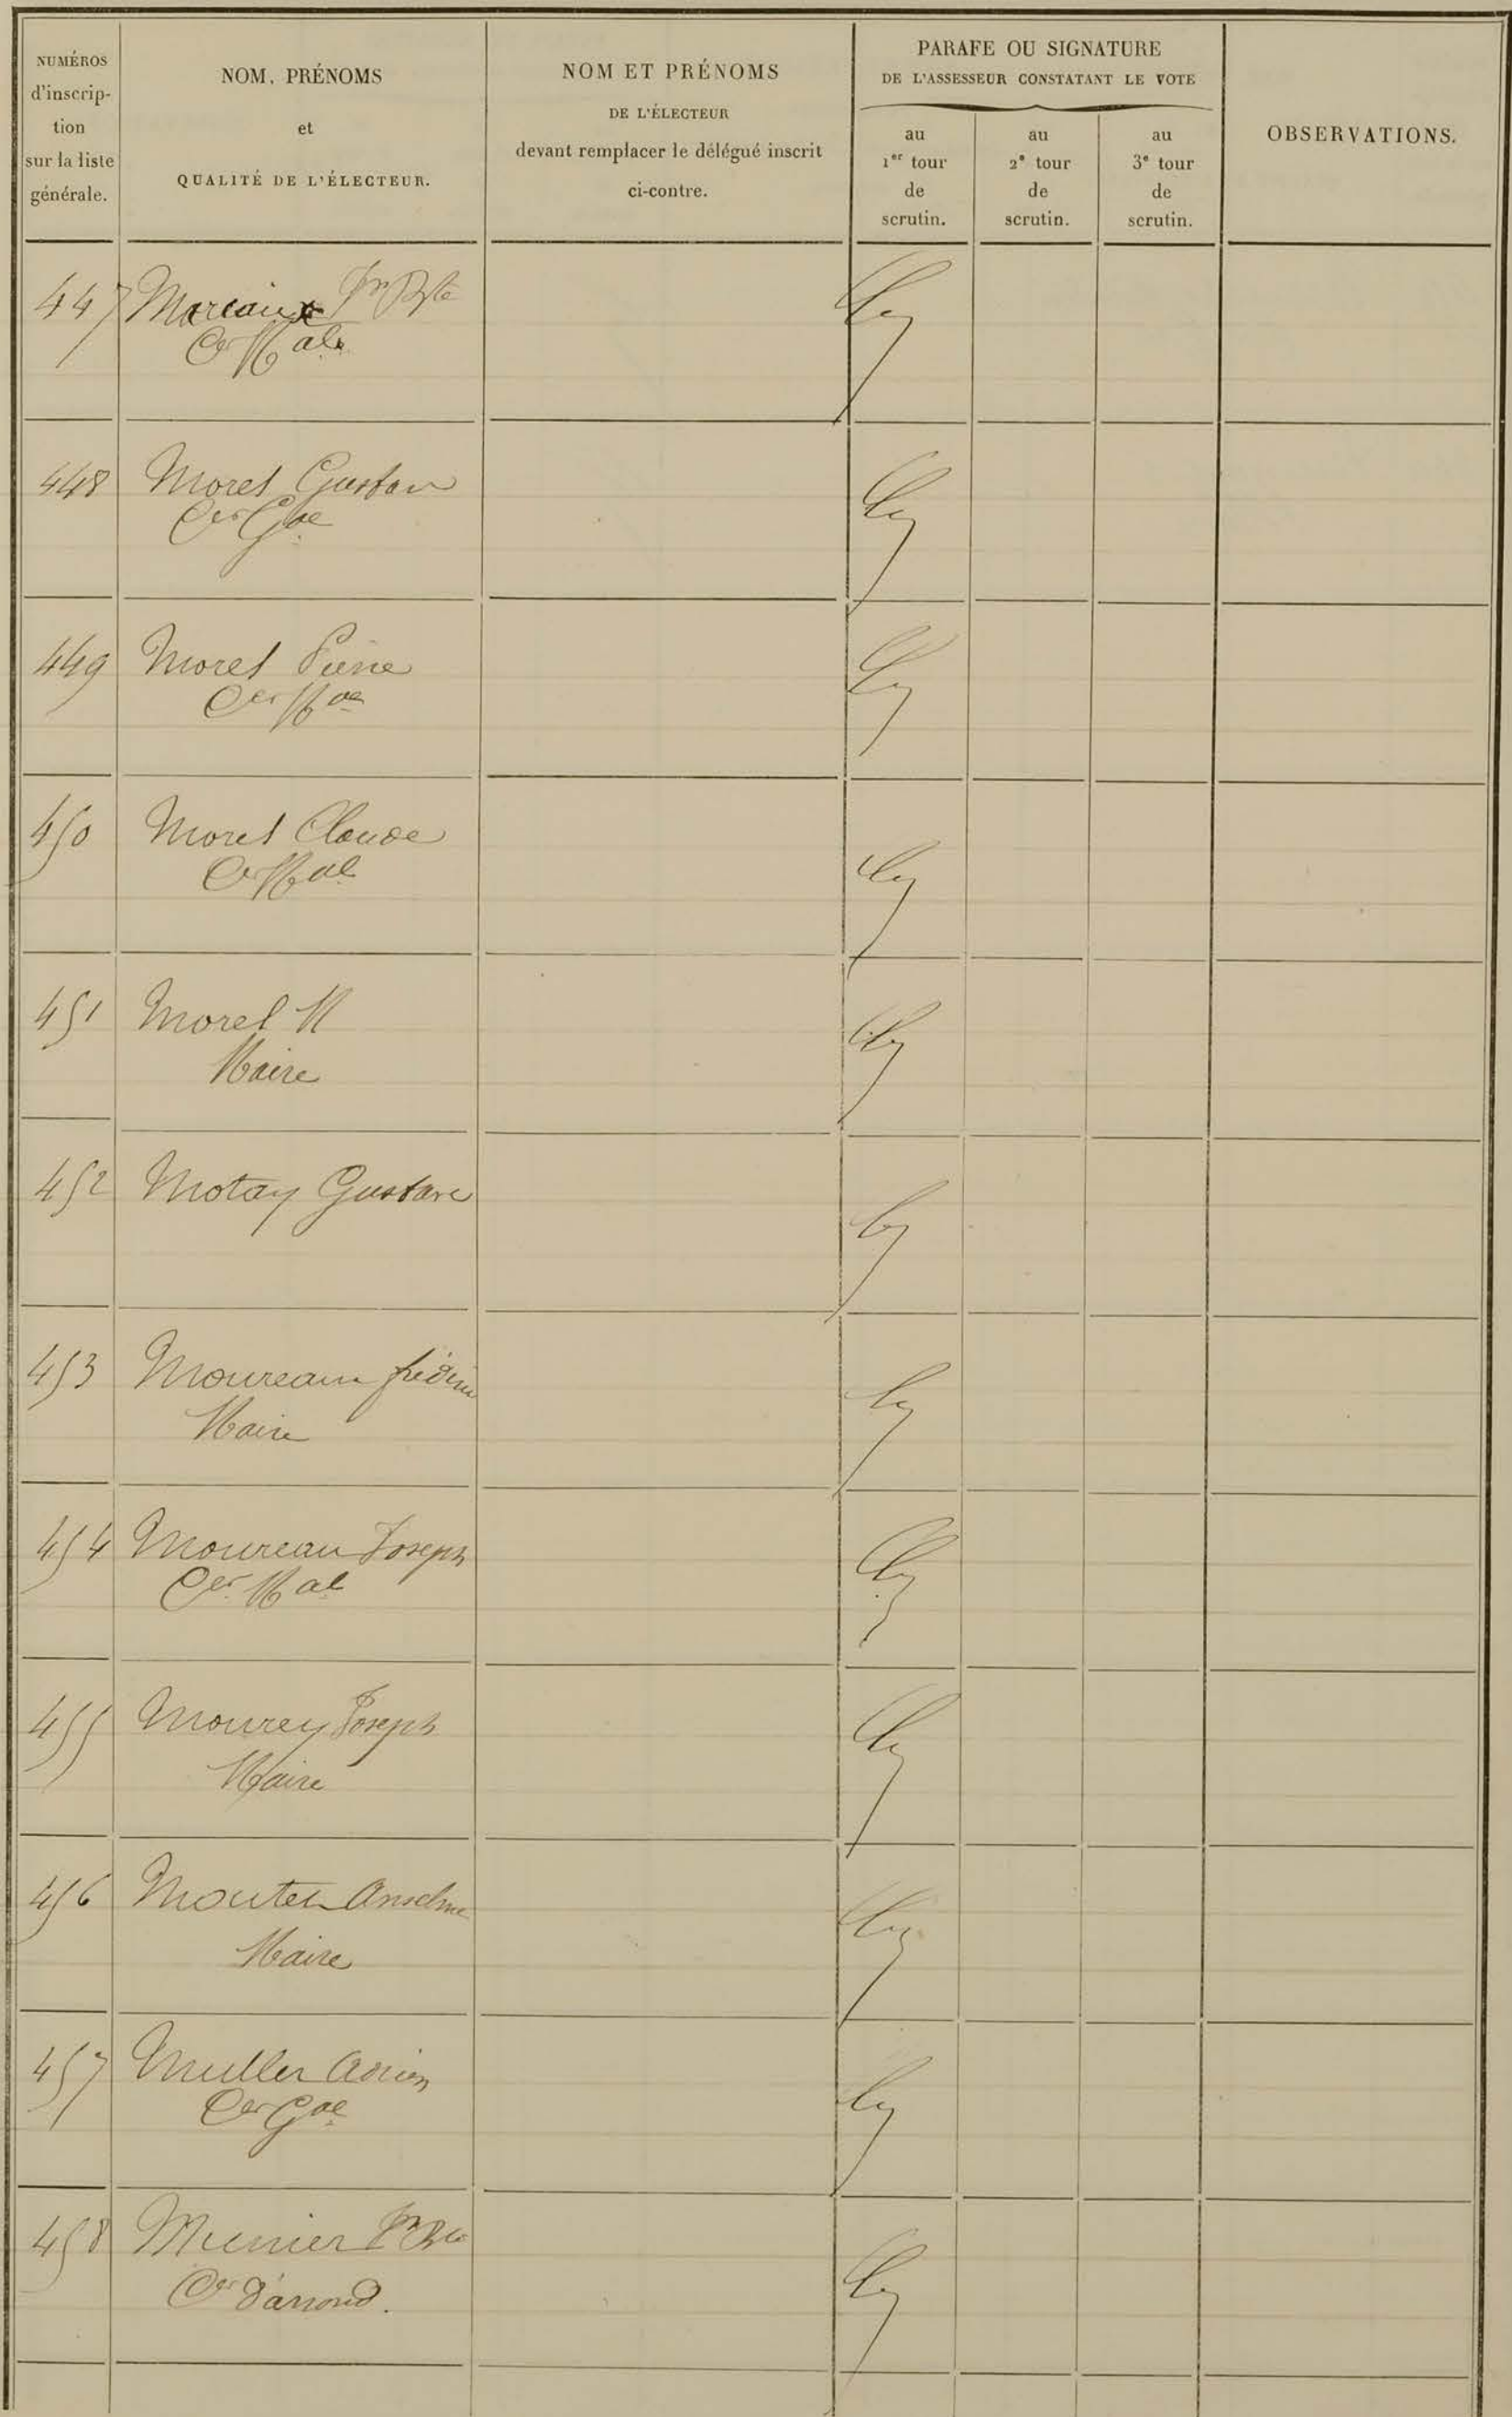 NUMÉROS
d'inscrip-
tion
sur la liste
générale.
NOM, PRÉNOMS
et
QUALITÉ DE L'ÉLECTEUR.
NOM ET PRÉNOMS
DE L'ÉLECTEUR
devant remplacer le délégué inscrit
ci-contre.
PARAFE OU SIGNATURE
DE L'ASSESSEUR CONSTATANT LE VOTE
au
1er tour
de
scrutin.
au
2e tour
de
scrutin.
au
3e tour
de
scrutin.
OBSERVATIONS.
447 Marcaux Jn Bte
Cer Mal
448 Morel Gustave
Cer Gal
449 Morel Pierre
Cer Mal
450 Morel Claude
Cer Mal
451 Morel M
Maire
452 Motay Gustave
453 Moureaux
Maire
454 Moureau Joseph
Cer Mal
455 Mourey Joseph
Maire
456 Anselme
Maire
457 Muller Adrien
Cer Gal
458 Munier Jn Bte
Cer d'arrond.